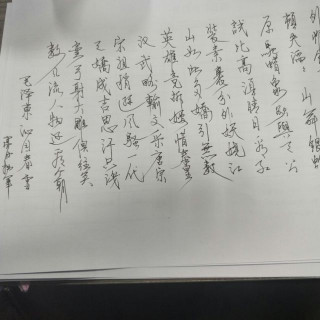 顿失滔滔山舞银蛇
原驰蜡象欲與天公
试比高须晴日看红
装素裹分外妖娆江
山如此多娇引無數
英雄竞折腰惜秦皇
汉武略輸文采唐宗
宋祖稍逊风騷一代
天骄成吉思汗只识
弯弓射大雕俱往矣
数风流人物还看今朝
毛泽東沁园春雪